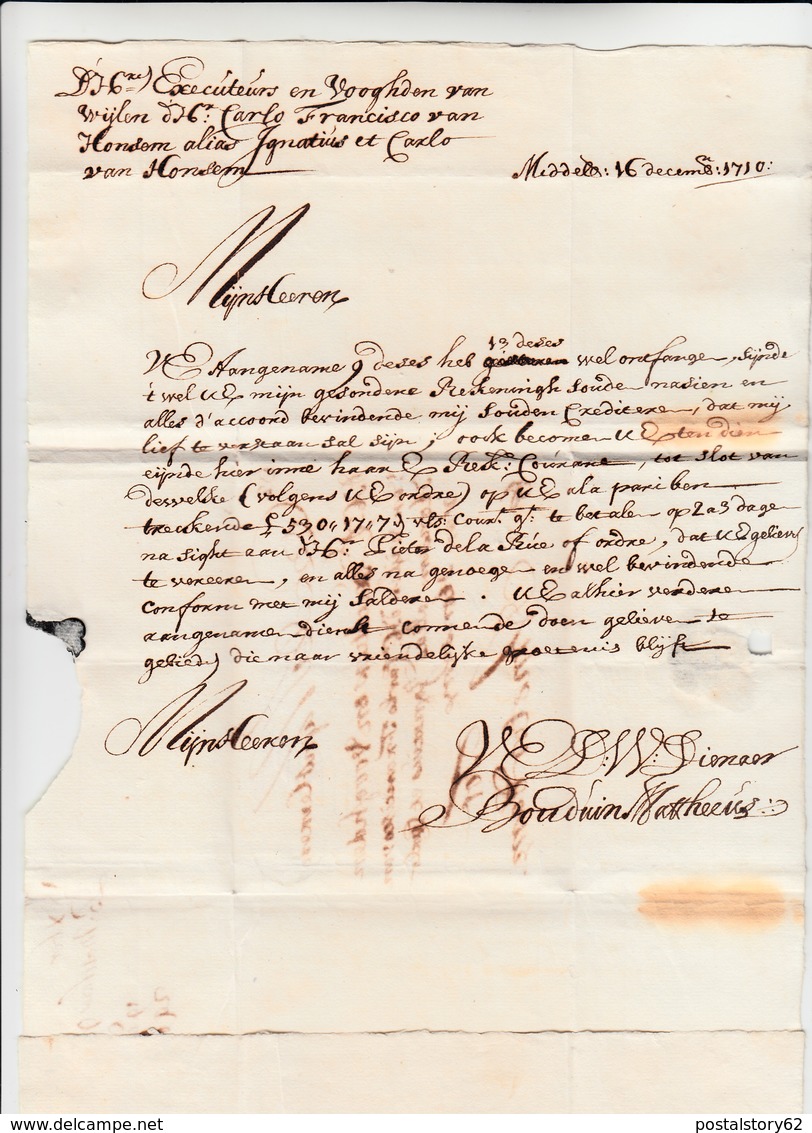 D'Hren Executeurs en Vooghden van
Wijlen d'Hr. Carlo Francisco van
Honsem alias Ignatius et Carlo
van Honsem
Middelb: 16 decembr: 1710:
Mijn Heeren
UE Aangename deses heb 13 deses wel ontfange, sijnde
't wel UE mijn gesondere Rekeningh soude nasien en
alles d'accoord bevindende mij souden Creditere, dat mij
lief te verstaan sal sijn; oock becomen UE ten dien
eijnde hier inne haar E Rek: Courant, tot slot van
dewelke (volgens UE ordre) op UE ala pari ben
treckende £530„17„7 vls: Cour: te betalen op 2 a 3 dage
na sight aan d'Hr. Pieter dela Rúe of ordre, dat UE gelieve
te vereeren, en alles na genoege en wel bevindende
conform met mij Saldere. UE alhier verdere
aangename dienst connende doen gelieve te
gebied) die naar vriendelijke groetenis blijft
Mijn Heeren
UE D: W: Dienaer
Bouduin Mattheeus:
postalstory62